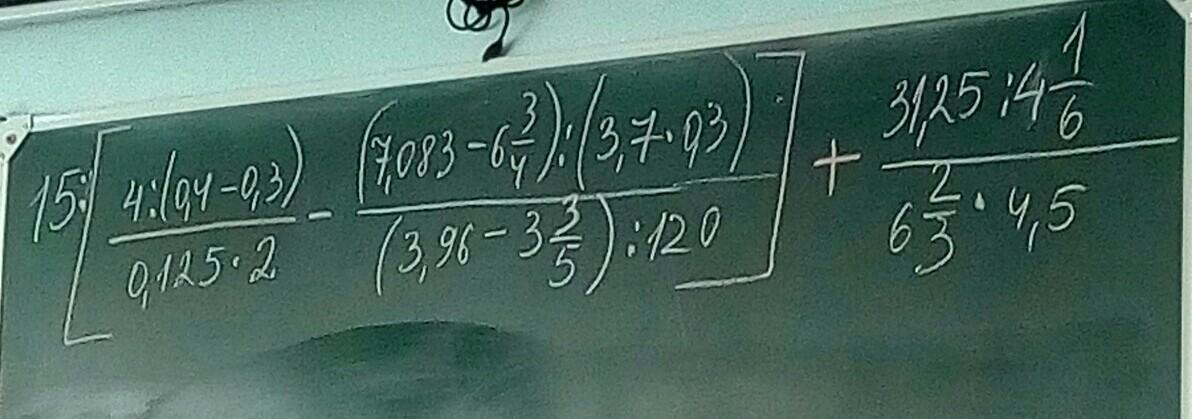 15:[\frac{4:(0,4-0,3)}{0,125·2} - \frac{(7,083-6\frac{3}{4}):(3,7·0,3)}{(3,96-3\frac{3}{5}):120}] + \frac{31,25:4\frac{1}{6}}{6\frac{2}{3}·4,5}